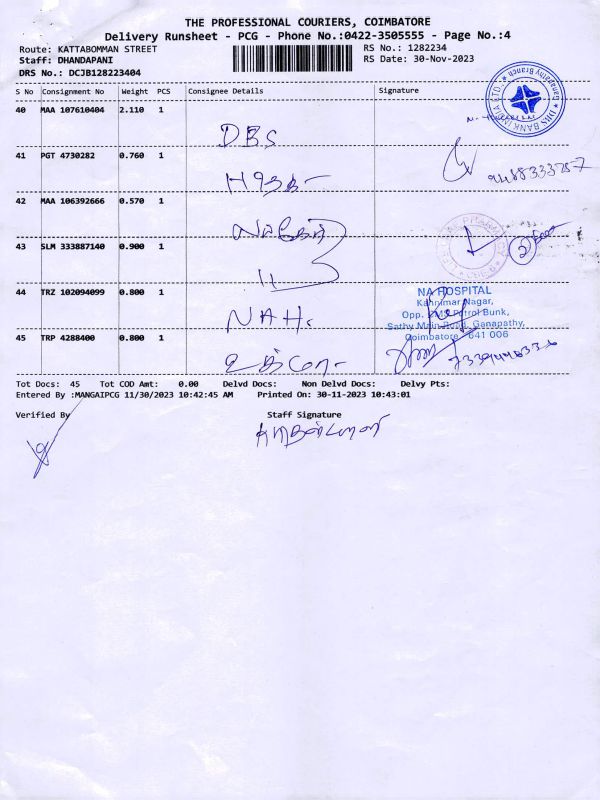 THE PROFESSIONAL COURIERS, COIMBATORE
Delivery Runsheet - PCG - Phone No.:0422-3505555 - Page No.:4
Route: KATTABOMMAN STREET RS No.: 1282234
Staff: DHANDAPANI RS Date: 30-Nov-2023
DRS No.: DCJB128223404
S No Consignment No Weight PCS Consignee Details Signature
40 MAA 107610404 2.110 1
DBS
DBS BANK INDIA LTD. * Ganapathy Branch *
41 PGT 4730282 0.760 1
42 MAA 106392666 0.570 1
43 SLM 333887140 0.900 1
11
44 TRZ 102094099 0.800 1
NAH.
NA HOSPITAL
Kannimar Nagar,
Opp. CMS Petrol Bunk,
Sathy Main Road, Ganapathy,
Coimbatore - 641 006
45 TRP 4288400 0.800 1
Tot Docs: 45 Tot COD Amt: 0.00 Delvd Docs: Non Delvd Docs: Delvy Pts:
Entered By :MANGAIPCG 11/30/2023 10:42:45 AM Printed On: 30-11-2023 10:43:01
Verified By Staff Signature